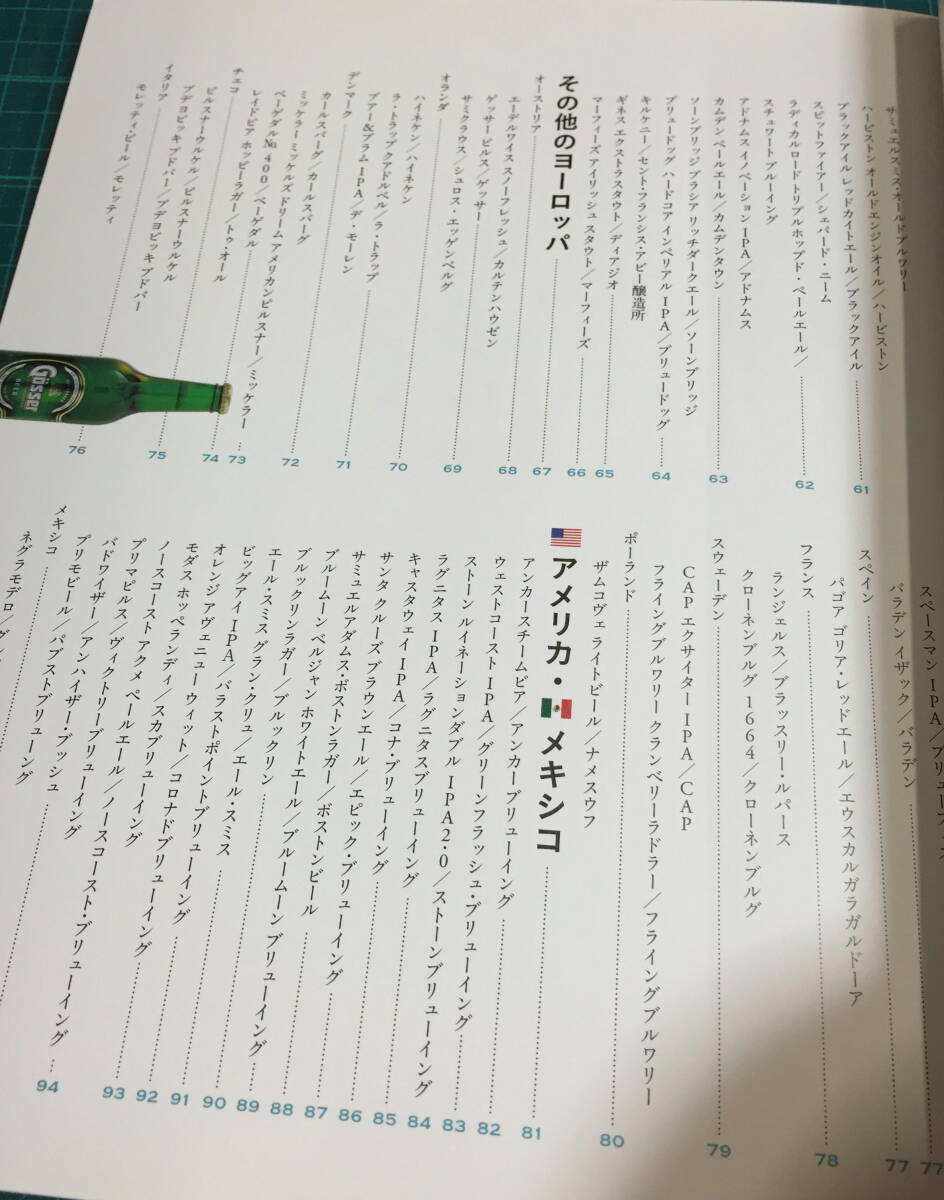 サミュエルスミス・オールドブルワリー
ハービストン オールドエンジンオイル／ハービストン
ブラックアイル レッドカイトエール／ブラックアイル 61
スピットファイアー／シェパード・ニーム
ラディカルロード トリプルホップド・ペールエール／ 62
スチュワート ブルーイング
アドナムス イノベーション IPA／アドナムス
カムデン ペールエール／カムデンタウン 63
ソーンブリッジ ブラシア リッチダークエール／ソーンブリッジ
ブリュードッグ ハードコア インペリアル IPA／ブリュードッグ 64
キルケニー／セント・フランシス・アビー醸造所
ギネス エクストラスタウト／ディアジオ 65
マーフィーズ アイリッシュ スタウト／マーフィーズ 66
その他のヨーロッパ 67
オーストリア
エーデルワイス スノーフレッシュ／カルテンハウゼン 68
ゲッサー ピルス／ゲッサー
サミクラウス／シュロス・エッゲンベルグ 69
オランダ
ハイネケン／ハイネケン
ラ・トラップ クアドルペル／ラ・トラップ 70
プアー&プラム IPA／デ・モーレン
デンマーク 71
カールスバーグ／カールスバーグ
ミッケラー ミッケルズドリーム アメリカンピルスナー／ミッケラー 72
ベーゲダル№400／ベーゲダル
レイドビア ホッピーラガー／トゥ・オール 73
チェコ 74
ピルスナーウルケル／ピルスナーウルケル
ブデヨビッキ ブドバー／ブデヨビッキ ブドバー 75
イタリア
モレッティ・ビール／モレッティ 76
Gösser
スペースマン IPA／ブリュー 77
バラデン イザック／バラデン 77
スペイン
パゴア ゴリア・レッドエール／エウスカルガラガルドーア
フランス 78
ランジェルス／ブラッスリー・ルパース
クローネンブルグ 1664／クローネンブルグ
スウェーデン 79
CAP エクサイター IPA／CAP
フライングブルワリー クランベリーラドラー／フライングブルワリー
ポーランド 80
ザムコヴェ ライトビール／ナメスウフ
アメリカ・メキシコ 81
アンカースチームビア／アンカーブリューイング
ウェストコースト IPA／グリーンフラッシュ・ブリューイング 82
ストーン ルイネーションダブル IPA2・0／ストーンブリューイング 83
ラグニタス IPA／ラグニタスブリューイング
キャスタウェイ IPA／コナ・ブリューイング 84
サンタ クルーズ ブラウンエール／エピック・ブリューイング 85
サミュエルアダムス・ボストンラガー／ボストンビール 86
ブルームーン ベルジャン ホワイトエール／ブルームーン ブリューイング 87
ブルックリンラガー／ブルックリン 88
エール・スミス グラン・クリュ／エール・スミス 89
ビッグアイ IPA／バラストポイントブリューイング 90
オレンジ アヴェニュー ウィット／コロナドブリューイング
モダス ホッペランディ／スカブリューイング 91
ノースコースト アクメ ペールエール／ノースコースト・ブリューイング 92
プリマピルス／ヴィクトリーブリューイング
バドワイザー／アンハイザー・ブッシュ 93
プリモビール／パブストブリューイング
メキシコ 94
ネグラモデロ／グ